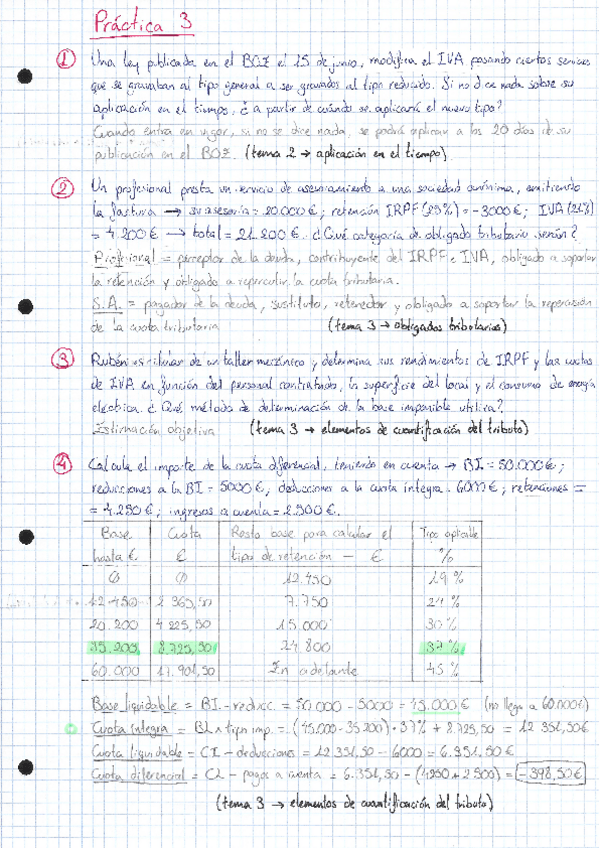 Práctica 3
① Una ley publicada en el BOE el 15 de junio, modifica el IVA pasando ciertos servicios
que se gravaban al tipo general a ser gravados al tipo reducido. Si no dice nada sobre su
aplicación en el tiempo, ¿a partir de cuándo se aplicará el nuevo tipo?
Cuando entra en vigor, si no se dice nada, se podrá aplicar a los 20 días de su
publicación en el BOE. (tema 2 → aplicación en el tiempo)
② Un profesional presta un servicio de asesoramiento a una sociedad anónima, emitiendo
la factura → su asesoría = 20.000 €; retención IRPF (15%) = -3000 €; IVA (21%)
= 4.200 € → total = 21.200 €. ¿Qué categoría de obligado tributario serían?
Profesional = perceptor de la deuda, contribuyente del IRPF e IVA, obligado a soportar
la retención y obligado a repercutir la cuota tributaria.
S.A. = pagador de la deuda, sustituto, retenedor y obligado a soportar la repercusión
de la cuota tributaria (tema 3 → obligados tributarios)
③ Rubén es titular de un taller mecánico y determina sus rendimientos de IRPF y las cuotas
de IVA en función del personal contratado, la superficie del local y el consumo de energía
eléctrica. ¿Qué método de determinación de la base imponible utiliza?
Estimación objetiva (tema 3 → elementos de cuantificación del tributo)
④ Calcula el importe de la cuota diferencial, teniendo en cuenta → BI = 50.000 €;
reducciones a la BI = 5000 €, deducciones a la cuota íntegra: 6000 €; retenciones =
= 4.250 €; ingresos a cuenta = 2.500 €.
Base hasta € Cuota € Resto base para calcular el tipo de retención — € Tipo aplicable %
0 0 12.450 19 %
12.450 2.365,50 7.750 24 %
20.200 4.225,50 15.000 30 %
35.200 8.725,50 24.800 37 %
60.000 17.901,50 En adelante 45 %
Base liquidable = BI - reducc. = 50.000 - 5000 = 45.000 € (no llega a 60.000 €)
Cuota íntegra = BL x tipo imp. = (45.000 - 35.200) · 37% + 8.725,50 = 12.351,50 €
Cuota líquidable = CI - deducciones = 12.351,50 - 6000 = 6.351,50 €
Cuota diferencial = CL - pagos a cuenta = 6.351,50 - (4250 + 2500) = -398,50 €
(tema 3 → elementos de cuantificación del tributo)